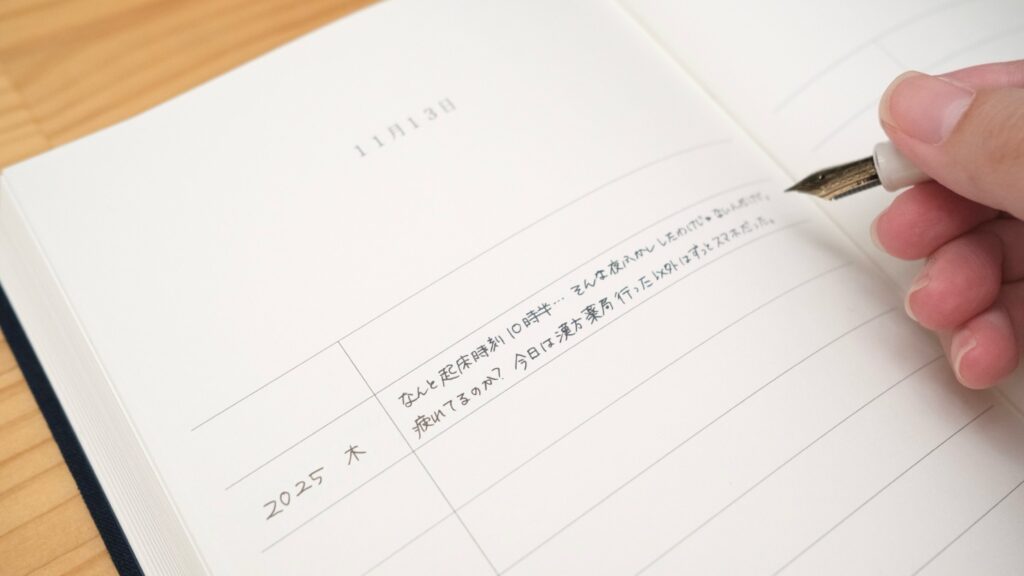 11月13日
2025 木
なんと起床時刻10時半… そんな夜ふかししたわけじゃないんだけど。
疲れてるのか？ 今日は漢方薬局行った以外はずっとスマホだった。